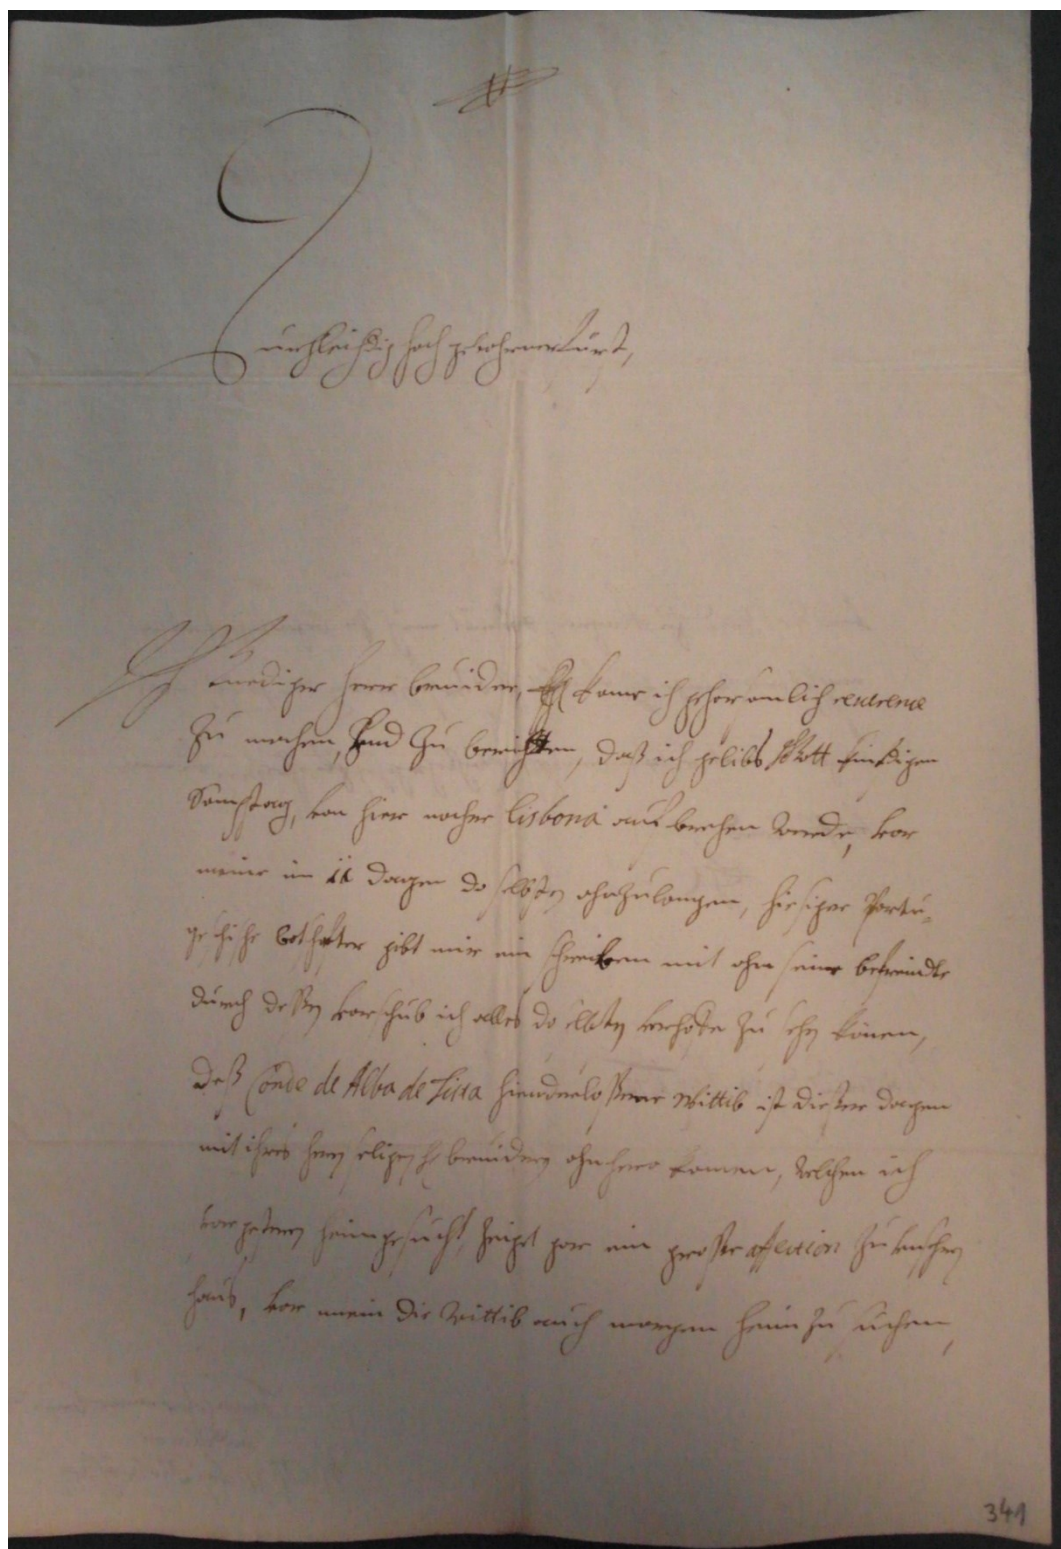 Durchleichtig hoch gebohrner Fürst,
Gnediger Herr bruider, komme ich gehorsamlich reverence
Zu machen, und Zu berichten, daß ich geliebts Gott kinftigen
Sambstag, von hier nacher lisbona auf brechen werde, vor
meine in 11 dagen do selbsten ahnzulangen, hiesiger Portu-
gesische botschafter gibt mir ein schreiben mit ahn seine befreindte
durch dessen vorschub ich alles do selbsten verhofe zu sehen können,
deß Conde de Alba de Lista hienderlossene Wittib ist dießer dagen
mit ihres hern seligen bruidern ahnhero komen, welchen ich
vorgestern heimgesucht, zeiget gar ein große affection zu unserem
haus, vor mein die wittib auch morgen heim zu suchen,
341